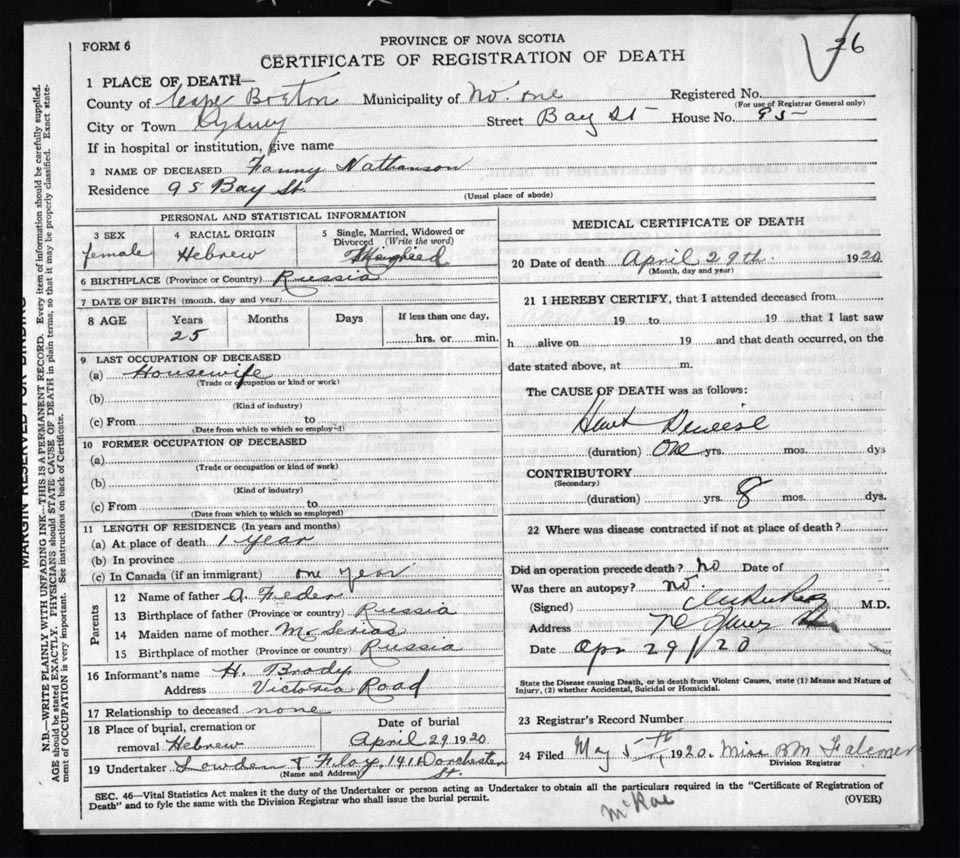 FORM 6
PROVINCE OF NOVA SCOTIA
CERTIFICATE OF REGISTRATION OF DEATH
26
1 PLACE OF DEATH—
County of Cape Breton Municipality of No. one Registered No.
(For use of Registrar General only)
City or Town Sydney Street Bay St House No. 95
If in hospital or institution, give name
2 NAME OF DECEASED Fanny Nathanson
Residence 95 Bay St.
(Usual place of abode)
PERSONAL AND STATISTICAL INFORMATION
3 SEX
female
4 RACIAL ORIGIN
Hebrew
5 Single, Married, Widowed or
Divorced (Write the word)
6 BIRTHPLACE (Province or Country) Russia
7 DATE OF BIRTH (month, day and year)
8 AGE Years Months Days If less than one day,
25 hrs. or min.
9 LAST OCCUPATION OF DECEASED
(a) Housewife
(Trade or occupation or kind or work)
(b)
(Kind of industry)
(c) From to
(Date from which to which so employed)
10 FORMER OCCUPATION OF DECEASED
(a)
(Trade or occupation or kind of work)
(b)
(Kind of industry)
(c) From to
(Date from which to which so employed)
11 LENGTH OF RESIDENCE (In years and months)
(a) At place of death 1 year
(b) In province
(c) In Canada (if an immigrant) one year
Parents
12 Name of father A. Feder
13 Birthplace of father (Province or country) Russia
14 Maiden name of mother M.
15 Birthplace of mother (Province or country) Russia
16 Informant's name H. Brody
Address Victoria Road
17 Relationship to deceased none
18 Place of burial, cremation or
removal Hebrew
Date of burial
April 29 1920
19 Undertaker Lowden & 141 Dorchester
St.
(Name and Address)
MEDICAL CERTIFICATE OF DEATH
20 Date of death April 29th. 1920
(Month, day and year)
21 I HEREBY CERTIFY, that I attended deceased from
19 to 19 that I last saw
h alive on 19 and that death occurred, on the
date stated above, at m.
The CAUSE OF DEATH was as follows:
Heart Disease
(duration) One yrs. mos. dys
CONTRIBUTORY
(Secondary)
(duration) yrs. 8 mos. dys.
22 Where was disease contracted if not at place of death?
Did an operation precede death? No Date of
Was there an autopsy? No.
(Signed) M.D.
Address
Date Apr 29/20
State the Disease causing Death, or in death from Violent Causes, state (1) Means and Nature of
Injury, (2) whether Accidental, Suicidal or Homicidal.
23 Registrar's Record Number
24 Filed May 5th 1920. Miss B M Falconer
Division Registrar
SEC. 46—Vital Statistics Act makes it the duty of the Undertaker or person acting as Undertaker to obtain all the particulars required in the "Certificate of Registration of
Death" and to fyle the same with the Division Registrar who shall issue the burial permit.
(OVER)
McRae
MARGIN RESERVED FOR BINDING
N.B.—WRITE PLAINLY WITH UNFADING INK—THIS IS A PERMANENT RECORD. Every item of information should be carefully supplied.
AGE should be stated EXACTLY. PHYSICIANS should STATE CAUSE OF DEATH in plain terms, so that it may be properly classified. Exact state-
ment of OCCUPATION is very important. See instructions on back of Certificate.